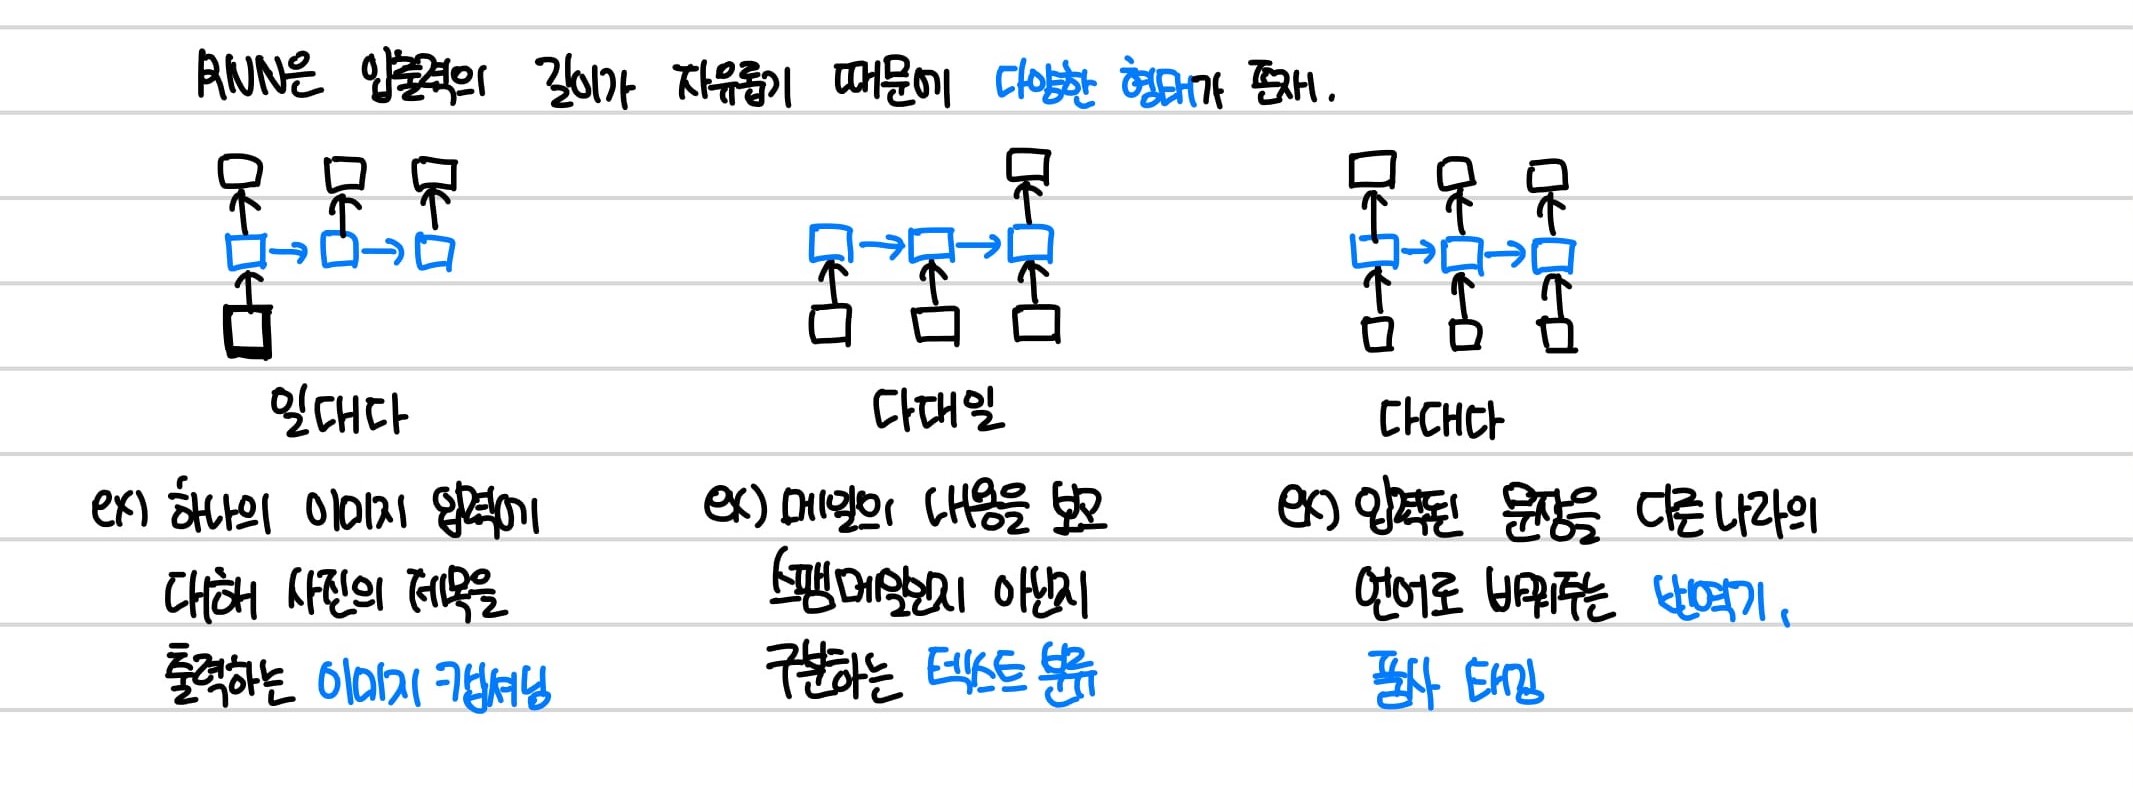 RNN은 입출력의 길이가 자유롭기 때문에 다양한 형태가 존재.
일대다
다대일
다대다
ex) 하나의 이미지 입력에
대해 사진의 제목을
출력하는 이미지 캡셔닝
ex) 메일의 내용을 보고
스팸메일인지 아닌지
구분하는 텍스트 분류
ex) 입력된 문장을 다른 나라의
언어로 바꿔주는 번역기,
품사 태깅